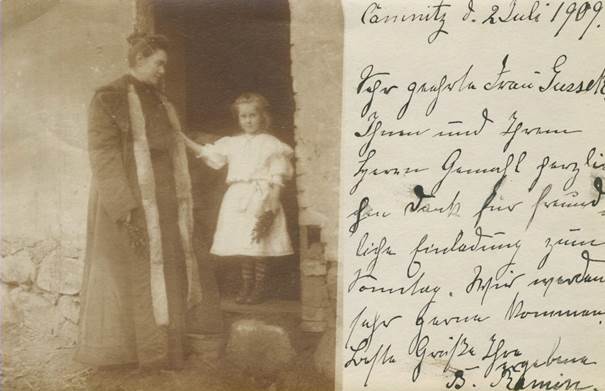 Camnitz d. 2 Juli 1909.
Sehr geehrte Frau Gussek
Ihnen und Ihrem
Herrn Gemahl herzli-
chen Dank für freund-
liche Einladung zum
Sonntag. Wir werden
sehr gerne kommen.
Beste Grüße Ihre
ergebene
B. Ramin.